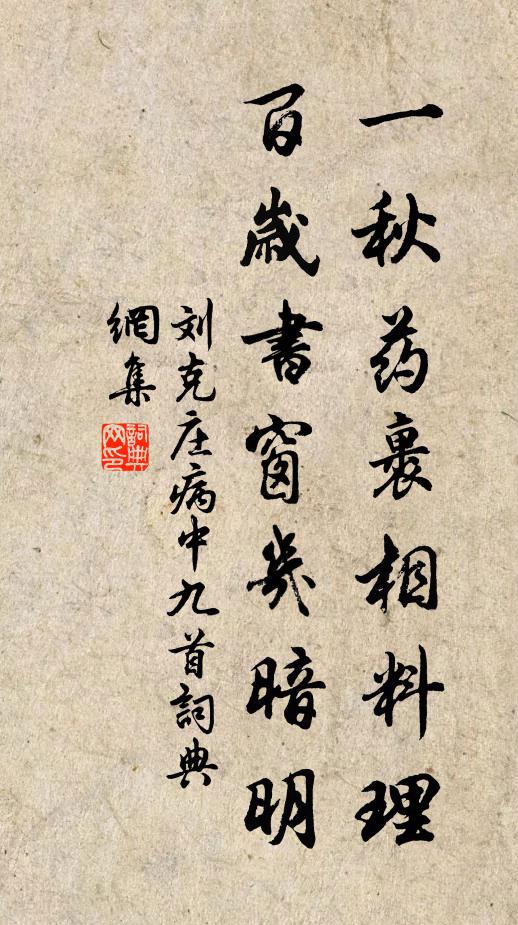 一秋药裹相料理
百歲書窗幾暗明
刘克庄病中九首詞典
網集
詞典網印